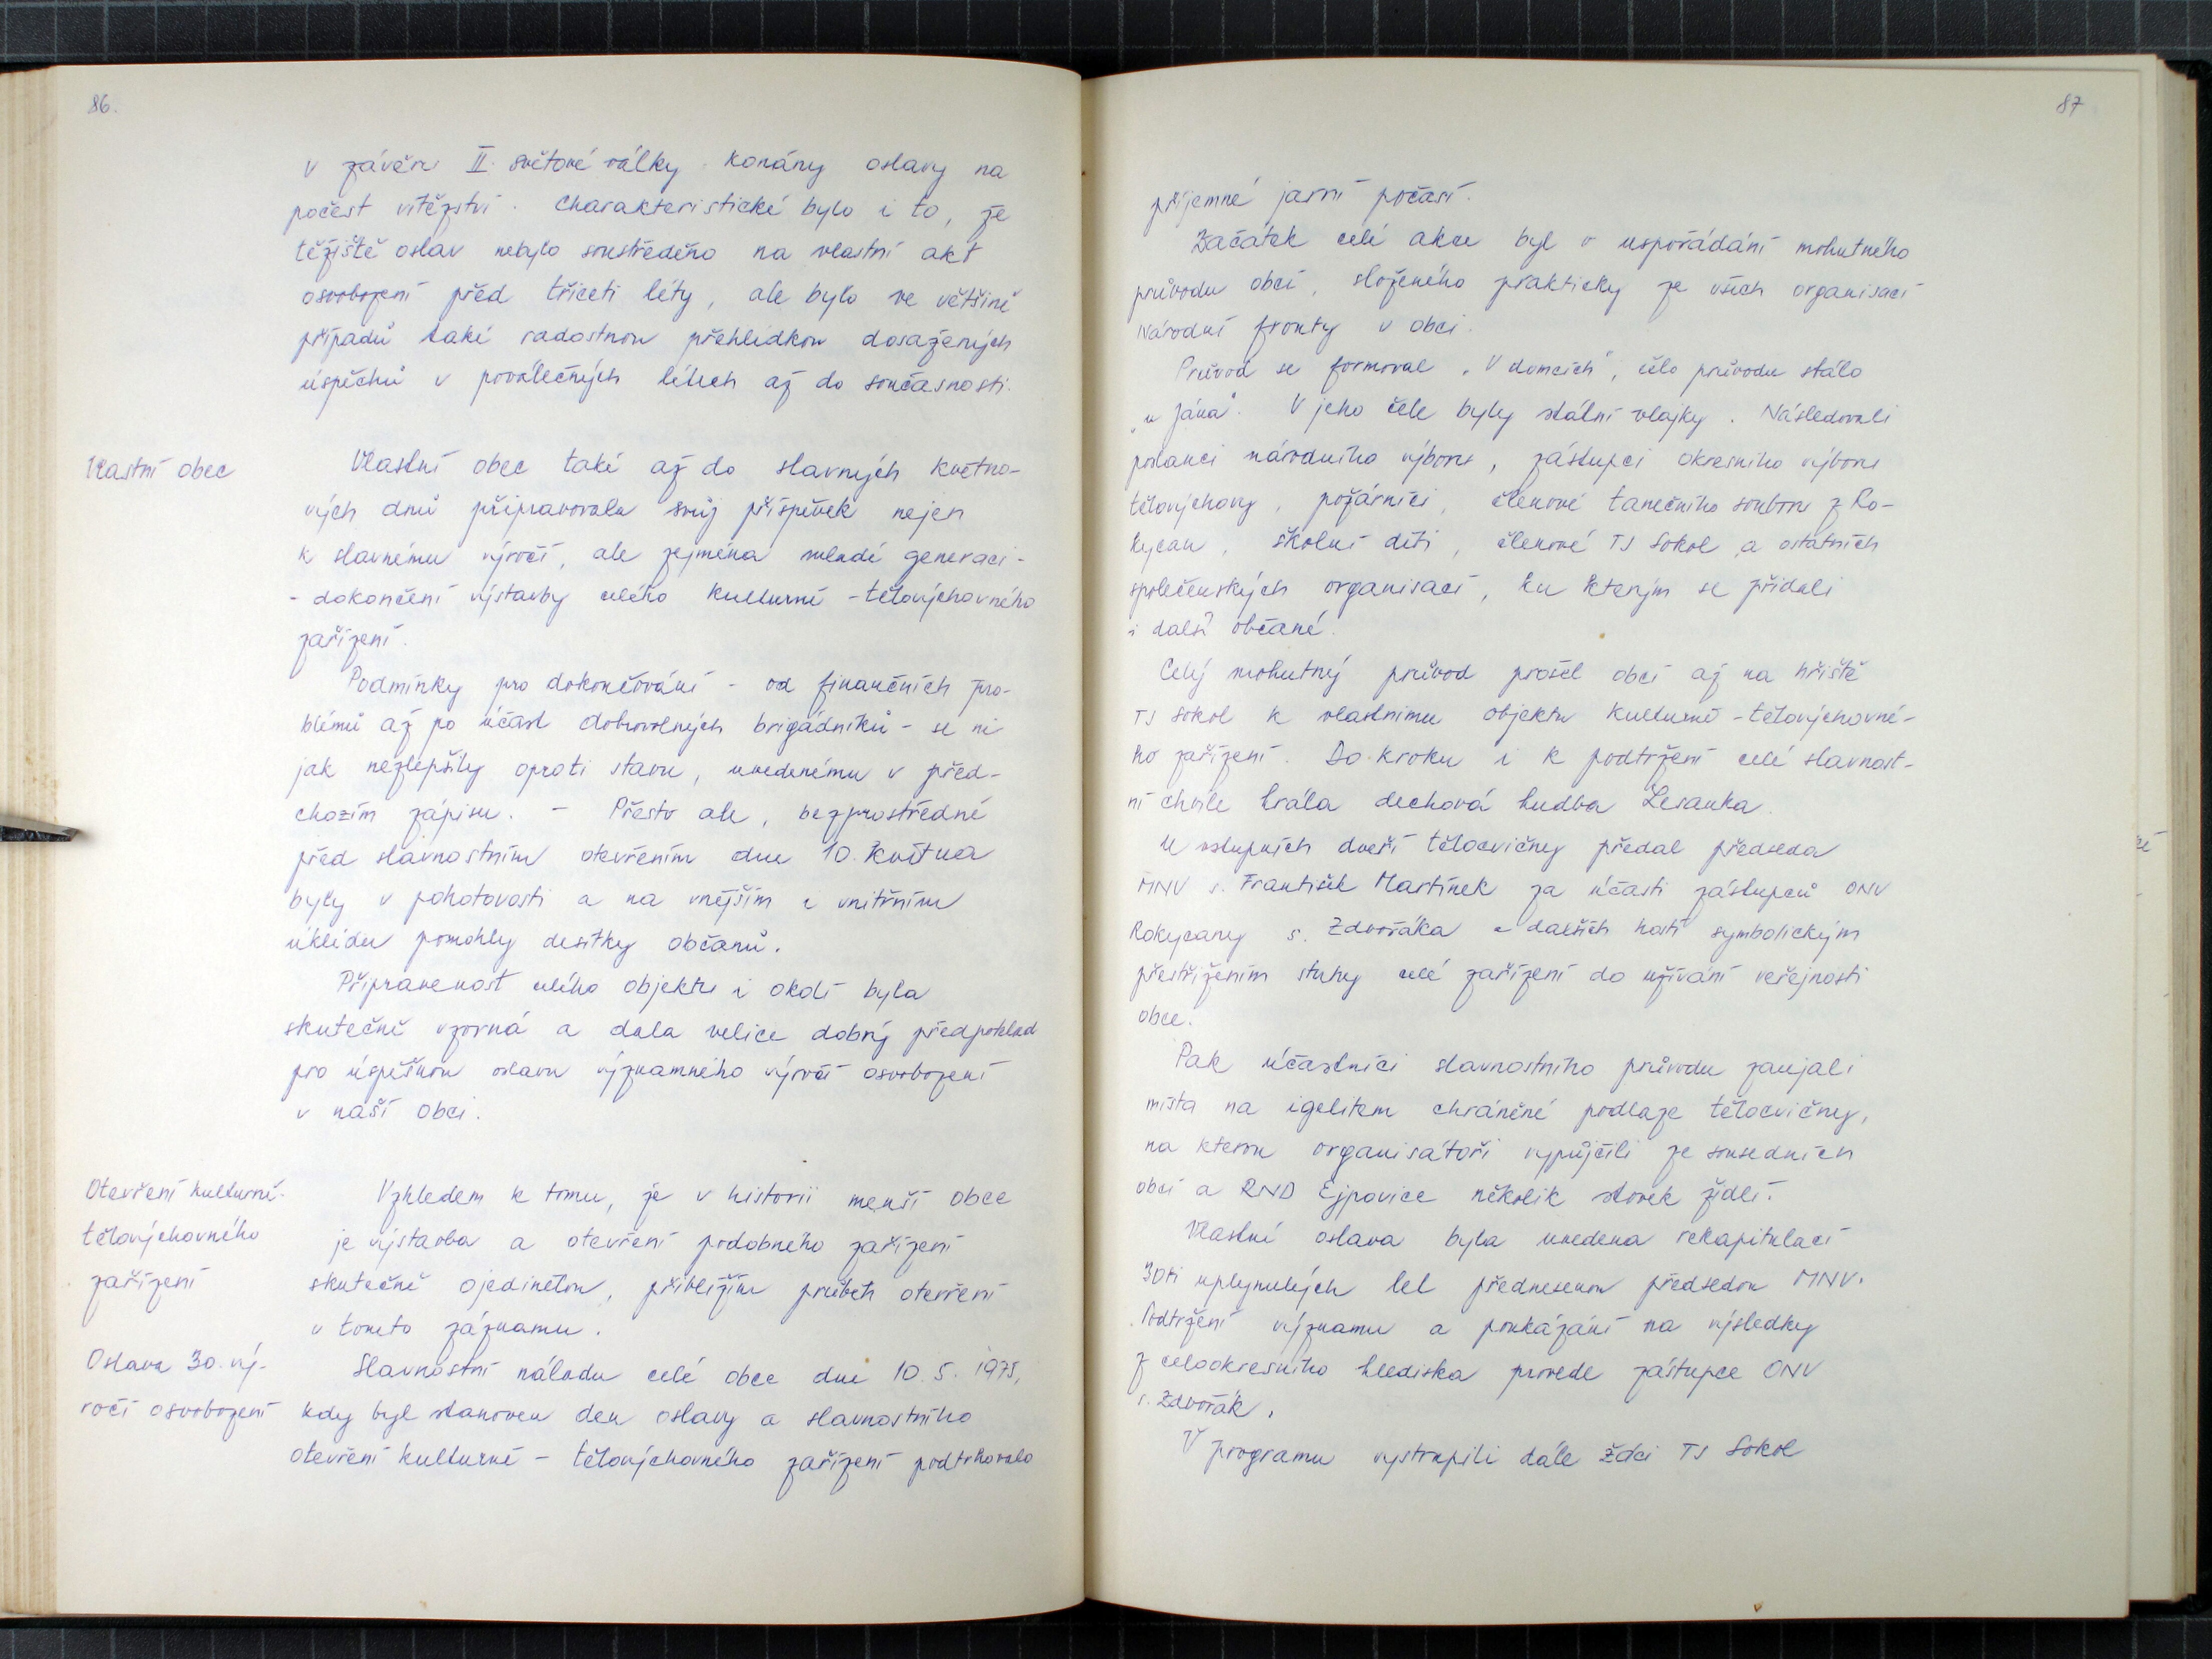 86.
v závěru II. světové války konány oslavy na
počest vítězství. Charakteristické bylo i to, že
těžiště oslav nebylo soustředěno na vlastní akt
osvobození před třiceti léty, ale bylo ve většině
případů také radostnou přehlídkou dosažených
úspěchů v poválečných létech až do současnosti.
Vlastní obec
Vlastní obec také až do slavných květno-
vých dnů připravovala svůj příspěvek nejen
k slavnému výročí, ale zejména mladé generaci -
- dokončení výstavby celého kulturně - tělovýchovného
zařízení.
Podmínky pro dokončování - od finančních pro-
blémů až po účast dobrovolných brigádníků - se ni
jak nezlepšily oproti stavu, uvedenému v před-
chozím zápisu. - Přesto ale, bezprostředně
před slavnostním otevřením dne 10. května
byly v pohotovosti a na vnějším i vnitřním
úklidu pomohly desítky občanů.
Připravenost celého objektu i okolí byla
skutečně vzorná a dala velice dobrý předpoklad
pro úspěšnou oslavu významného výročí osvobození
v naší obci.
Otevření kulturně-
tělovýchovného
zařízení
Vzhledem k tomu, že v historii menší obce
je výstavba a otevření podobného zařízení
skutečně ojedinělou, přiblížím průběh otevření
v tomto záznamu.
Oslava 30. vý-
ročí osvobození
Slavnostní náladu celé obce dne 10. 5. 1975,
kdy byl stanoven den oslavy a slavnostního
otevření kulturně - tělovýchovného zařízení podtrhovalo
87
příjemné jarní počasí.
Začátek celé akce byl v uspořádání mohutného
průvodu obcí, složeného prakticky ze všech organisací
Národní fronty v obci.
Průvod se formoval „V domcích", čelo průvodu stálo
„u Jána". V jeho čele byly státní vlajky. Následovali
poslanci národního výboru, zástupci okresního výboru
tělovýchovy, požárníci, členové tanečního souboru z Ro-
kycan, školní děti, členové TJ Sokol a ostatních
společenských organisací, ku kterým se přidali
i další občané.
Celý mohutný průvod prošel obcí až na hřiště
TJ Sokol k vlastnímu objektu kulturně - tělovýchovné-
ho zařízení. Do kroku i k podtržení celé slavnost-
ní chvíle hrála dechová hudba Lesanka.
U vstupních dveří tělocvičny předal předseda
MNV s. František Martínek za účasti zástupců ONV
Rokycany s. Zdvořáka a dalších hostí symbolickým
přestřižením stuhy celé zařízení do užívání veřejnosti
obce.
Pak účastníci slavnostního průvodu zaujali
místa na igelitem chráněné podlaze tělocvičny,
na kterou organisátoři vypůjčili ze sousedních
obcí a RND Ejpovice několik stovek židlí.
Vlastní oslava byla uvedena rekapitulací
30ti uplynulých let přednesenou předsedou MNV.
Podtržení významu a poukázání na výsledky
z celookresního hlediska provede zástupce ONV
s. Zdvořák.
V programu vystoupili dále žáci TJ Sokol